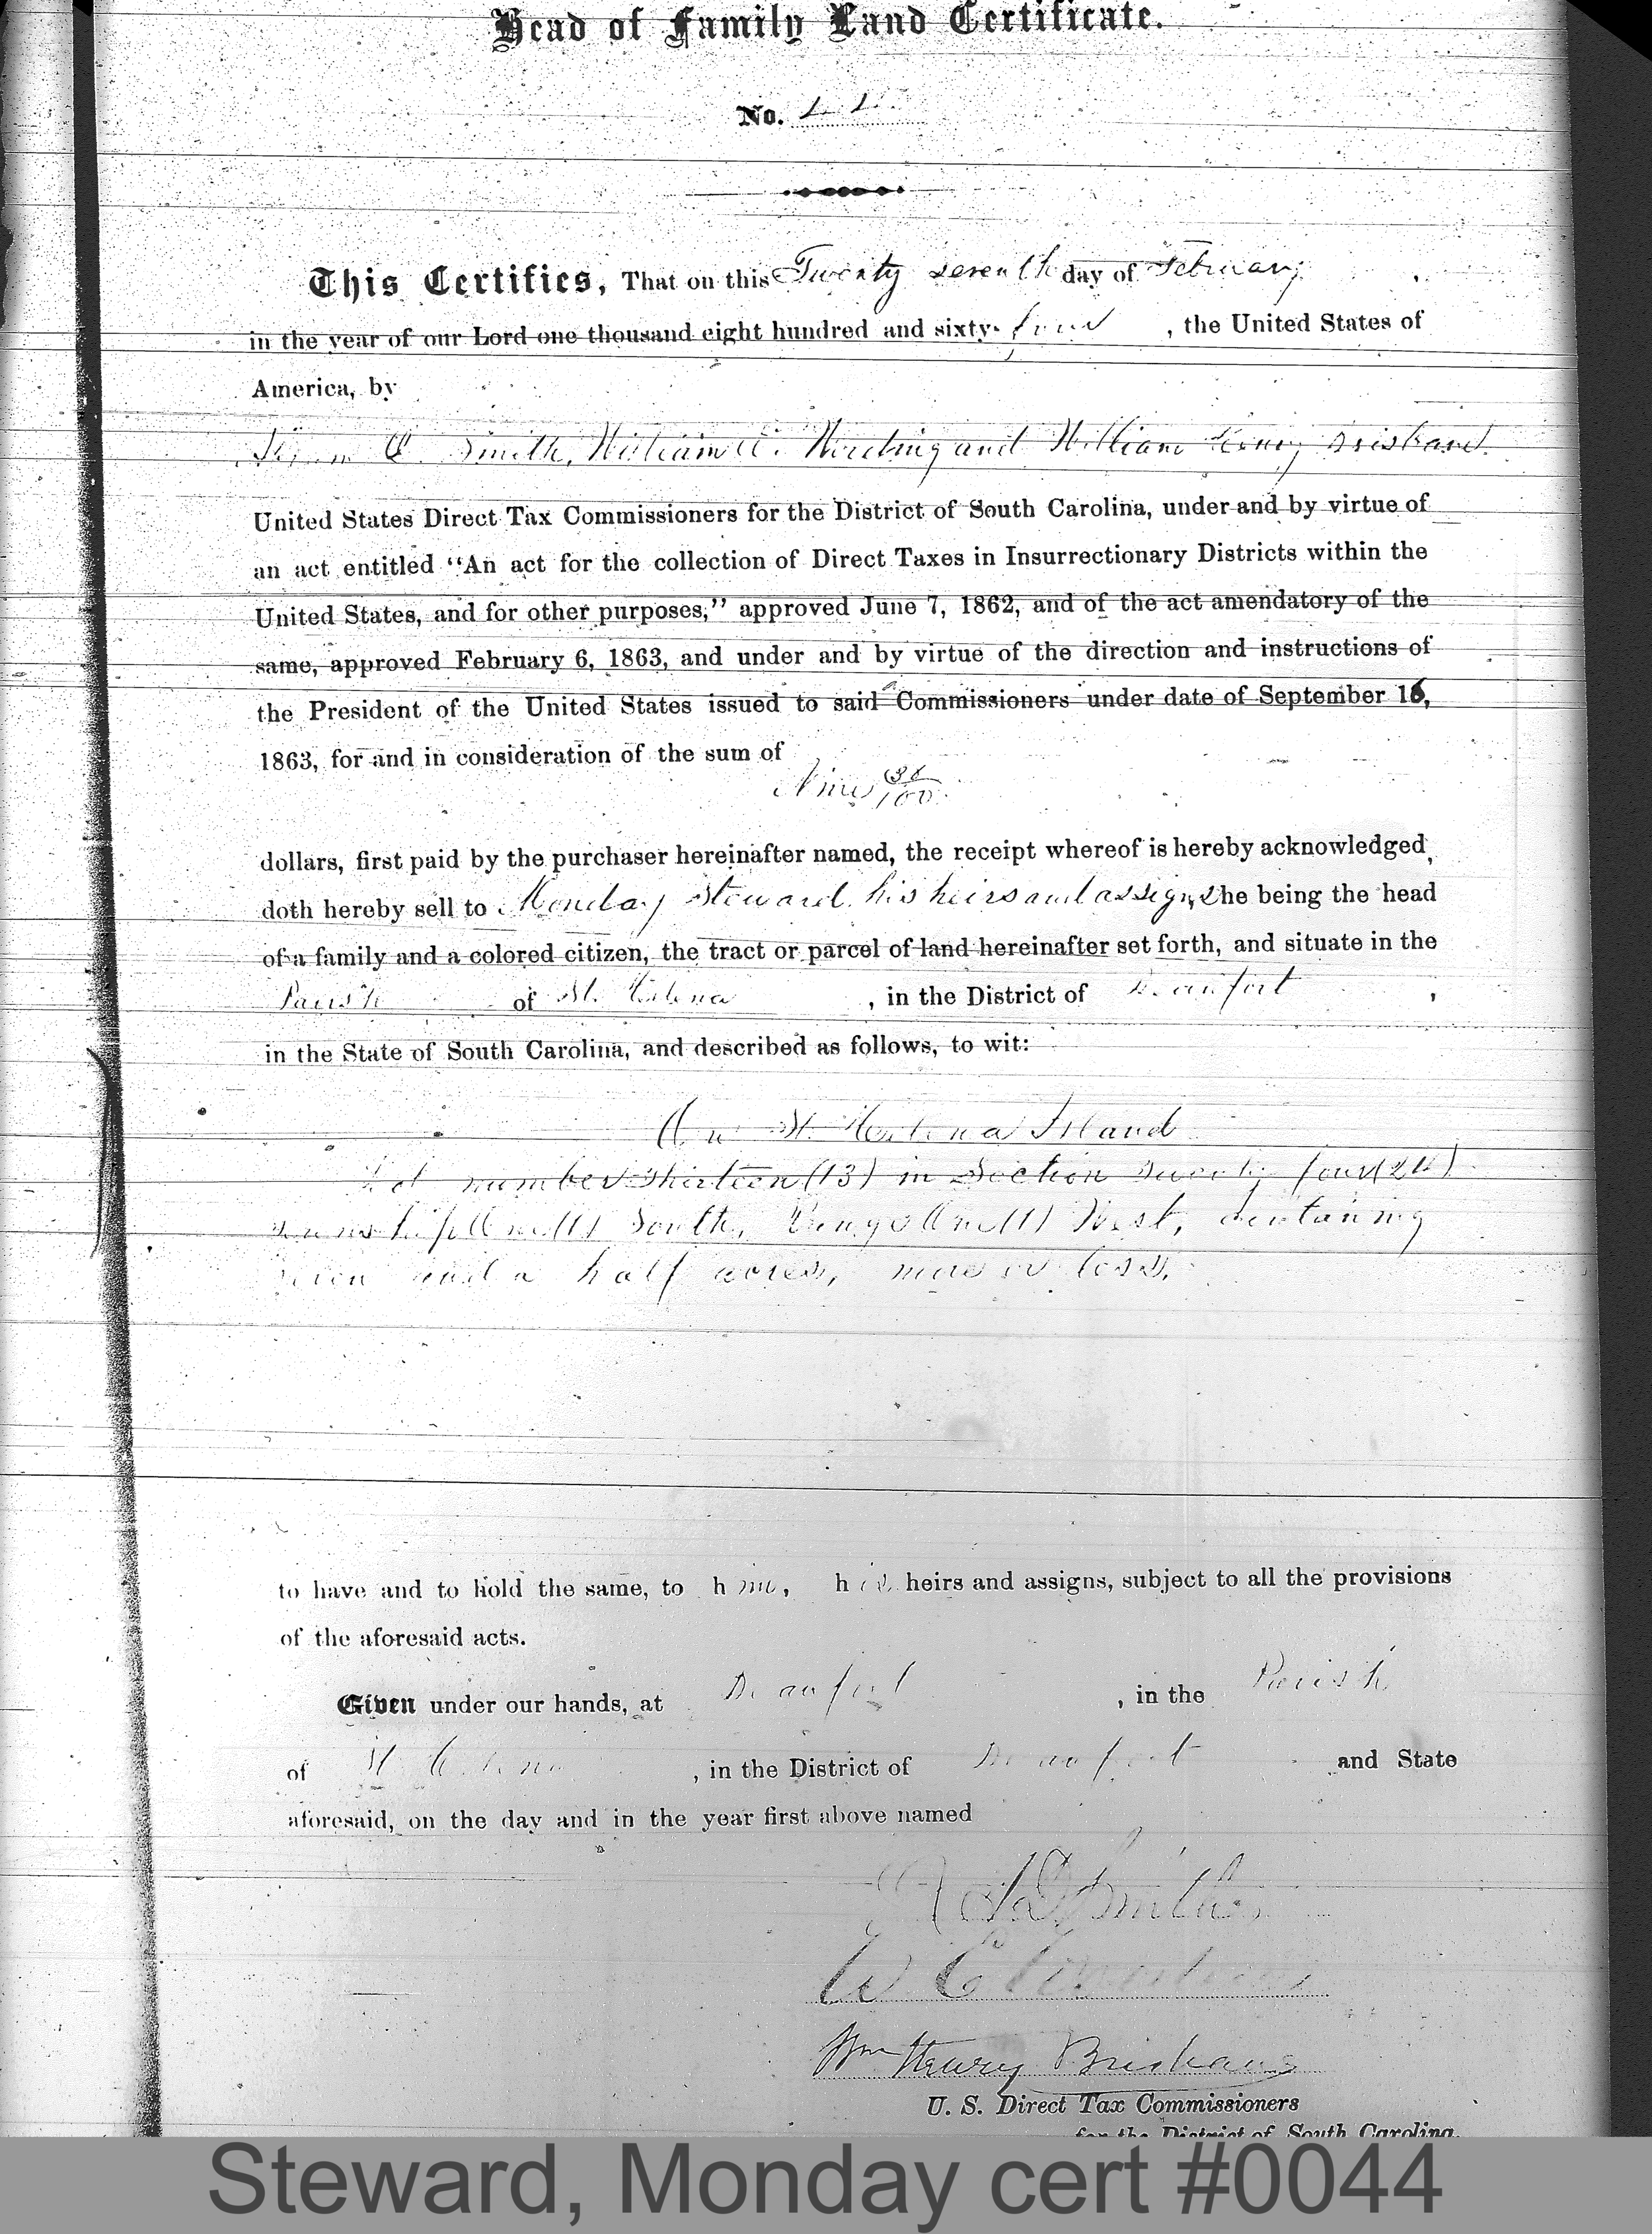 Head of Family Land Certificate.
No.
This Certifies, That on this Twenty seventh day of February,
in the year of our Lord one thousand eight hundred and sixty-four, the United States of
America, by
Smith, William E. Wording and William Henry Brisband
United States Direct Tax Commissioners for the District of South Carolina, under and by virtue of
an act entitled "An act for the collection of Direct Taxes in Insurrectionary Districts within the
United States, and for other purposes," approved June 7, 1862, and of the act amendatory of the
same, approved February 6, 1863, and under and by virtue of the direction and instructions of
the President of the United States issued to said Commissioners under date of September 16,
1863, for and in consideration of the sum of
Nine 38/100
dollars, first paid by the purchaser hereinafter named, the receipt whereof is hereby acknowledged,
doth hereby sell to Monday Steward, his heirs and assigns, he being the head
of a family and a colored citizen, the tract or parcel of land hereinafter set forth, and situate in the
Parish of St. Helena, in the District of Beaufort,
in the State of South Carolina, and described as follows, to wit:
On St. Helena Island
Lot number thirteen (13) in Section twenty four (24)
township One (1) South, Range One (1) West, containing
seven and a half acres, more or less.
to have and to hold the same, to him, his heirs and assigns, subject to all the provisions
of the aforesaid acts.
Given under our hands, at Beaufort, in the Parish
of St. Helena, in the District of Beaufort and State
aforesaid, on the day and in the year first above named
Smith
W E Wording
Wm Henry Brisbane
U. S. Direct Tax Commissioners
for the District of South Carolina.
Steward, Monday cert #0044